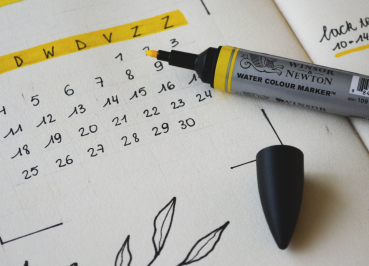 D W D V Z Z
1 2 3
4 5 6 7 8 9
11 12 13 14 15 16
18 19 20 21 22 23 24
25 26 27 28 29 30
WINSOR
& NEWTON
WATER COLOUR MARKER™
back
10-14